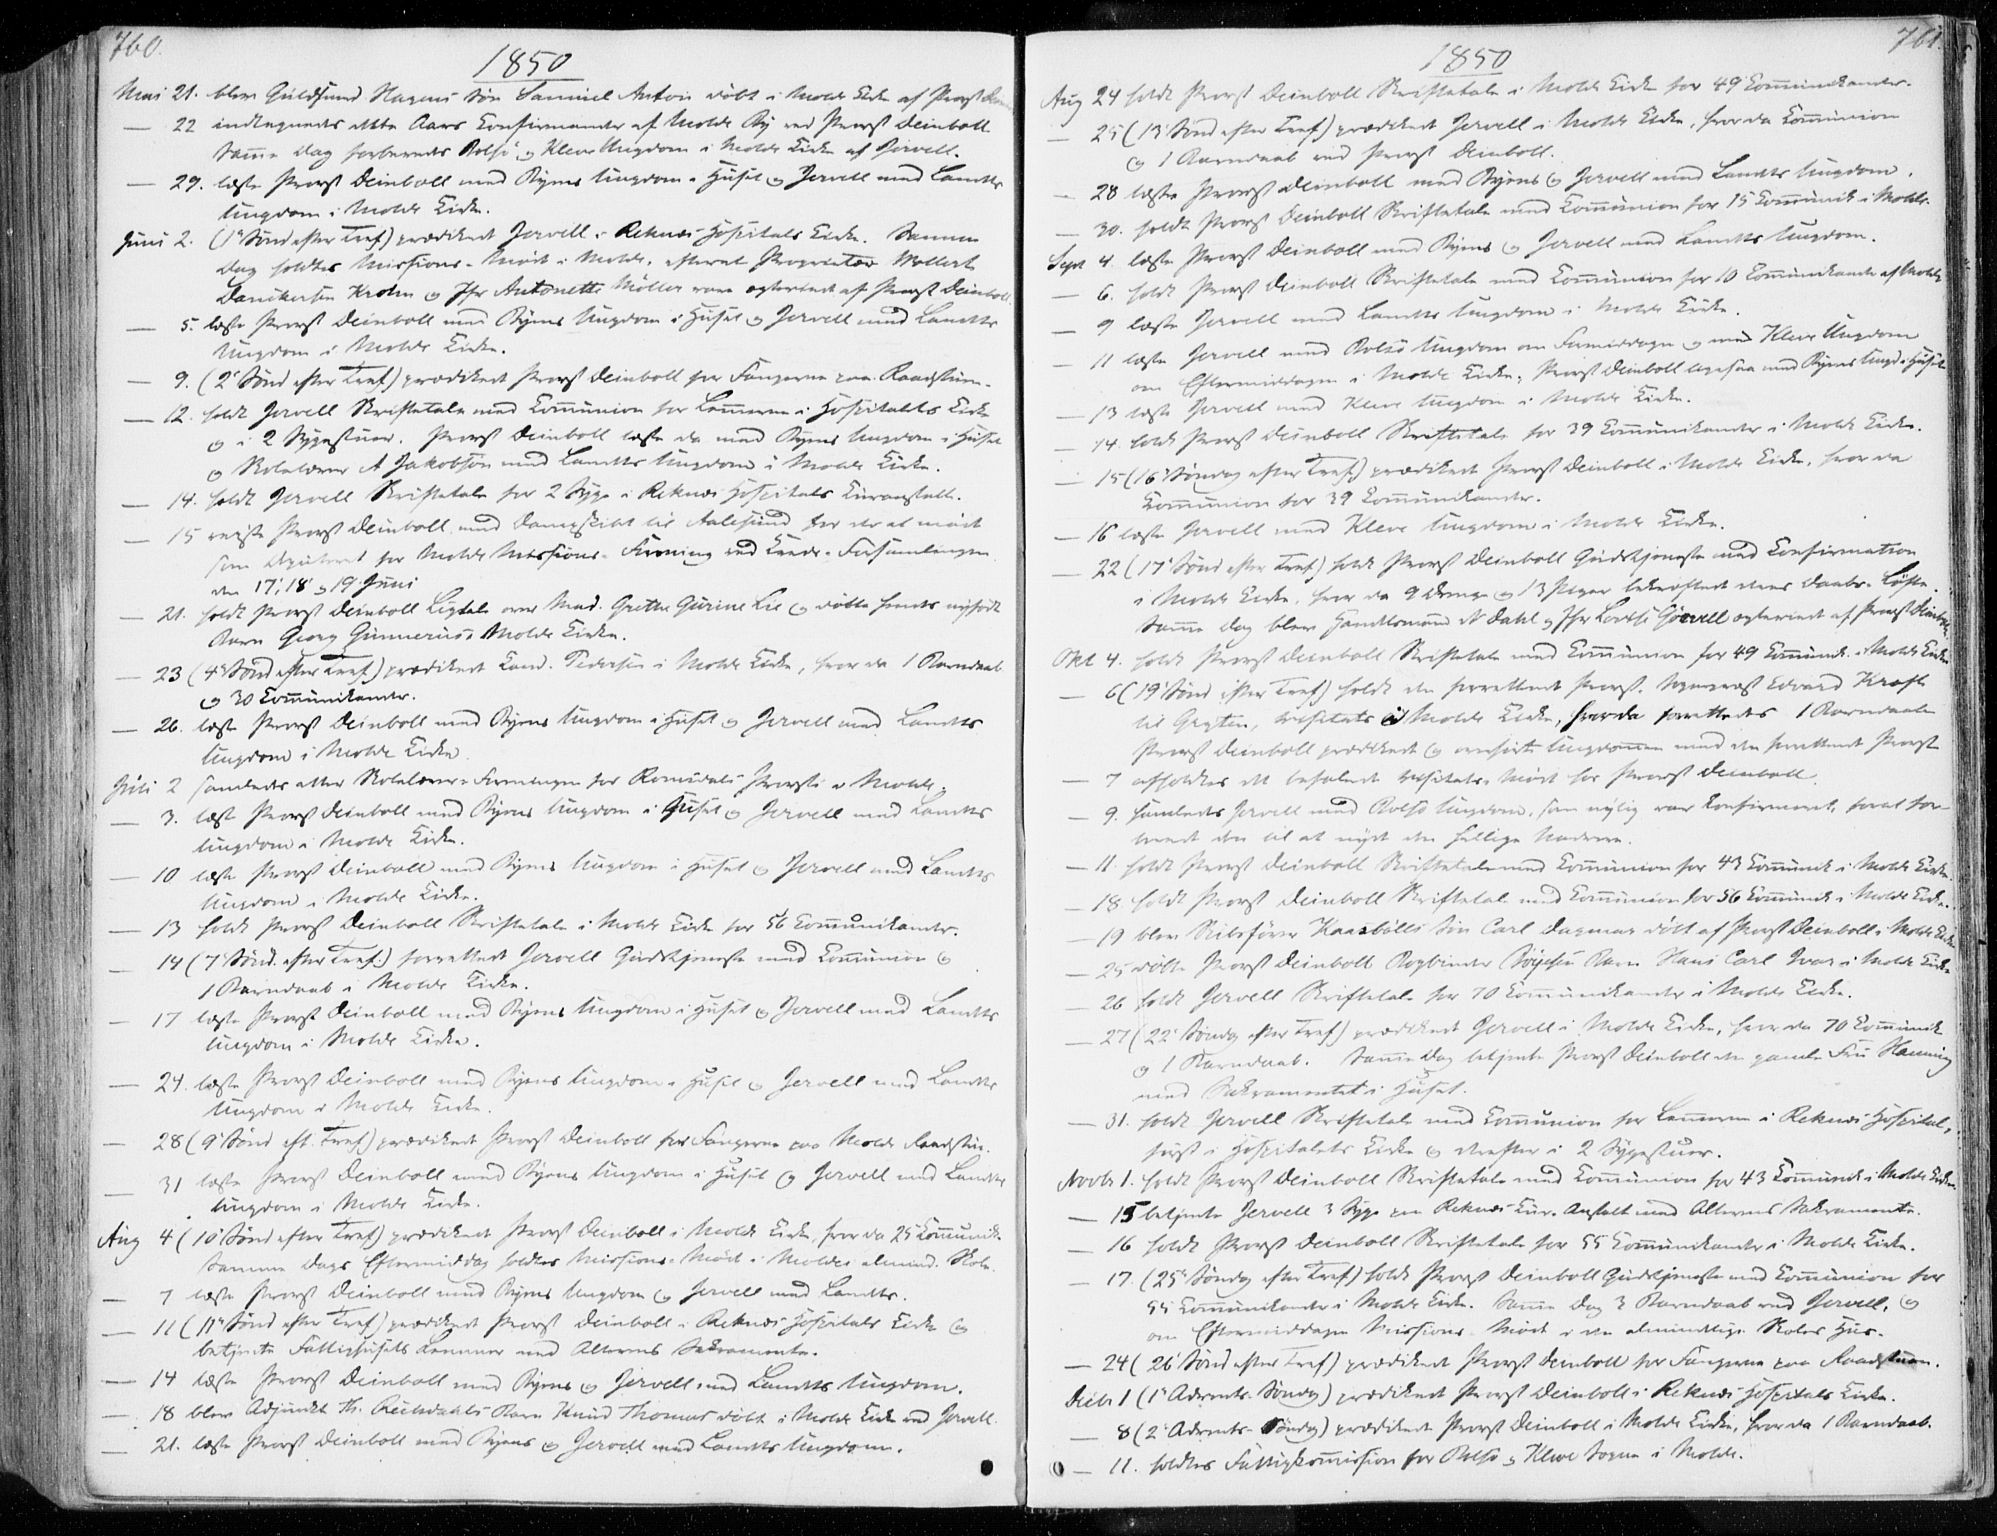 760.
1850
Mai 21. blev Guldsmed Hagens Søn Samuel Anton döbt i Molde Kirke af Provst
— 22 indtegnedes dette Aars Confirmander af Molde By ved Provst Deinboll
Samme Dag forberedtes Bolsö og Kleve Ungdom i Molde Kirke af Jervell.
— 29. læste Provst Deinboll med Byens Ungdom i Huset og Jervell med Landets
Ungdom i Molde Kirke.
Juni 2. (1ste Sönd efter Tref) prædikede Jervell i Reknæs Hospitals Kirke. Samme
Dag holdtes Missions-Möde i Molde, efterat Proprietær Wollert
Danckertsen Krohn og Jfr Antonette Möller vare egteviede af Provst Deinboll.
— 5. læste Provst Deinboll med Byens Ungdom i Huset og Jervell med Landets
Ungdom i Molde Kirke.
— 9. (2den Sönd efter Tref) prædikede Provst Deinboll for Fangerne paa Raadstuen.
— 12. holdt Jervell Skriftetale med Communion for Lemmerne i Hospitalets Kirke
og i 2 Sygestuer. Provst Deinboll læste da med Byens Ungdom i Huset
og Skolelærer A Jakobsön med Landets Ungdom i Molde Kirke.
— 14. holdt Jervell Skriftetale for 2 Syge i Reknæs Hospitals Curanstalt.
— 15 reiste Provst Deinboll med Dampskibet til Aalesund for der at møde
som Deputeret for Molde Missions-Forening ved Kreds-Forsamlingen
den 17, 18 og 19 Juni
— 21. holdt Provst Deinboll Ligtale over Mad. Grethe Gurine Lie og döbte hendes nyfödte
Barn Georg Gunnerius i Molde Kirke.
— 23 (4de Sönd efter Tref) prædikede Cand. Pedersen i Molde Kirke, hvor da 1 Barnedaab
og 30 Communikanter.
— 26. læste Provst Deinboll med Byens Ungdom i Huset og Jervell med Landets
Ungdom i Molde Kirke.
Juli 2 samledes atter Skolelærer-Foreningen for Romsdals Provsti i Molde.
— 3. læste Provst Deinboll med Byens Ungdom i Huset og Jervell med Landets
Ungdom i Molde Kirke.
— 10. læste Provst Deinboll med Byens Ungdom i Huset og Jervell med Landets
Ungdom i Molde Kirke.
— 13 holdt Provst Deinboll Skriftetale i Molde Kirke for 56 Communikanter.
— 14 (7de Sönd. efter Tref.) forrettede Jervell Gudstjeneste med Communion og
1 Barnedaab i Molde Kirke.
— 17 læste Provst Deinboll med Byens Ungdom i Huset og Jervell med Landets
Ungdom i Molde Kirke.
— 24. læste Provst Deinboll med Byens Ungdom i Huset og Jervell med Landets
Ungdom i Molde Kirke.
— 28 (9de Sönd eft. Tref) prædikede Provst Deinboll for Fangerne paa Molde Raadstue.
— 31 læste Provst Deinboll med Byens Ungdom i Huset og Jervell med Landets
Ungdom i Molde Kirke.
Aug 4 (10de Sönd efter Tref) prædikede Provst Deinboll i Molde Kirke, hvor da 25 Communik.
Samme Dags Eftermiddag holdtes Missions-Möde i Moldes almind. Skole.
— 7 læste Provst Deinboll med Byens Ungdom og Jervell med Landets.
— 11 (11te Sönd efter Tref) prædikede Provst Deinboll i Reknæs Hospitals Kirke og
betjente Fattighusets Lemmer med Alterens Sakramente.
— 14 læste Provst Deinboll med Byens og Jervell med Landets Ungdom.
— 18 blev Adjunkt Th. Barn Knud Thomas döbt i Molde Kirke ved Jervell.
— 21. læste Provst Deinboll med Byens og Jervell med Landets Ungdom.
761.
1850
Aug 24 holdt Provst Deinboll Skriftetale i Molde Kirke for 49 Communikanter.
— 25 (13de Sönd efter Tref) prædikede Jervell i Molde Kirke, hvor da Communion
og 1 Barnedaab ved Provst Deinboll.
— 28 læste Provst Deinboll med Byens og Jervell med Landets Ungdom.
— 30. holdt Provst Deinboll Skriftetale med Communion for 15 Communik i Molde.
Sept 4. læste Provst Deinboll med Byens og Jervell med Landets Ungdom.
— 6. holdt Provst Deinboll Skriftetale med Communion for 10 Communikanter af Molde
— 9 læste Jervell med Landets Ungdom i Molde Kirke.
— 11 læste Jervell med Bolsö Ungdom om Formiddagen og med Kleve Ungdom
om Eftermiddagen i Molde Kirke; Provst Deinboll ligesaa med Byens Ungd. i Huset
— 13 læste Jervell med Kleve Ungdom i Molde Kirke.
— 14. holdt Provst Deinboll Skriftetale for 39 Communikanter i Molde Kirke.
— 15 (16de Söndag efter Tref) prædikede Provst Deinboll i Molde Kirke, hvor da
Communion for 39 Communikanter.
— 16 læste Jervell med Kleve Ungdom i Molde Kirke.
— 22 (17de Sönd efter Tref) holdt Provst Deinboll Gudstjeneste med Confirmation
i Molde Kirke, hvor da 9 Drenge og 13 Piger bekræftede deres Daabs-Löfte.
Samme Dag blev Handelsmand N Dahl og Jfr Lovise Görvell egteviede af Provst Deinboll.
Okt 4. holdt Provst Deinboll Skriftetale med Communion for 49 Communik. i Molde Kirke
— 6 (19de Sönd efter Tref) holdt den forrettende Provst, Sognepræst Edvard Kraft
til Grytten, Visitats i Molde Kirke, hvor da forrettedes 1 Barnedaab
Provst Deinboll prædikede og overhörte Ungdommen med den forrettende Provst
— 7 afholdtes det befalede Visitats-Möde hos Provst Deinboll.
— 9. samledes Jervell med Bolsö Ungdom, som nylig var Confirmeret, forat for-
berede den til at nyde den hellige Nadvere.
— 11. holdt Provst Deinboll Skriftetale med Communion for 43 Communik i Molde Kirke.
— 18. holdt Provst Deinboll Skriftetale med Communion for 56 Communik i Molde Kirke.
— 19 blev Skibsförer Kaasbölls Sön Carl Dagmar döbt af Provst Deinboll i Molde Kirke
— 25 döbte Provst Deinboll Bogbinder Barn Hans Carl Ivar i Molde Kirke
— 26 holdt Jervell Skriftetale for 70 Communikanter i Molde Kirke.
— 27 (22de Söndag efter Tref) prædikede Jervell i Molde Kirke, hvor da 70 Communik
og 1 Barnedaab. Samme Dag betjente Provst Deinboll den gamle Fru
med Sakramentet i Huset.
— 31. holdt Jervell Skriftetale med Communion for Lemmerne i Reknæs Hospital,
först i Hospitalets Kirke og derefter i 2 Sygestuer.
Novbr 1. holdt Provst Deinboll Skriftetale med Communion for 43 Communik i Molde Kirke.
— 15 betjente Jervell 3 Syge paa Reknæs Cur-Anstalt med Alterens Sakramente.
— 16 holdt Provst Deinboll Skriftetale for 55 Communikanter i Molde Kirke.
— 17. (25de Söndag efter Tref) holdt Provst Deinboll Gudstjeneste med Communion for
55 Communikanter i Molde Kirke. Samme Dag 3 Barnedaab ved Jervell, og
om Eftermiddagen Missions-Möde i den almindelige Skoles Hus.
— 24 (26de Sönd efter Tref) prædikede Provst Deinboll for Fangerne paa Raadstuen.
Decbr 1 (1ste Advents-Söndag) prædikede Provst Deinboll i Reknæs Hospitals Kirke.
— 8 (2den Advents-Söndag) prædikede Provst Deinboll i Molde Kirke, hvor da 1 Barnedaab.
— 11. holdtes Fattigkommission for Bolsö og Kleve Sogne i Molde.